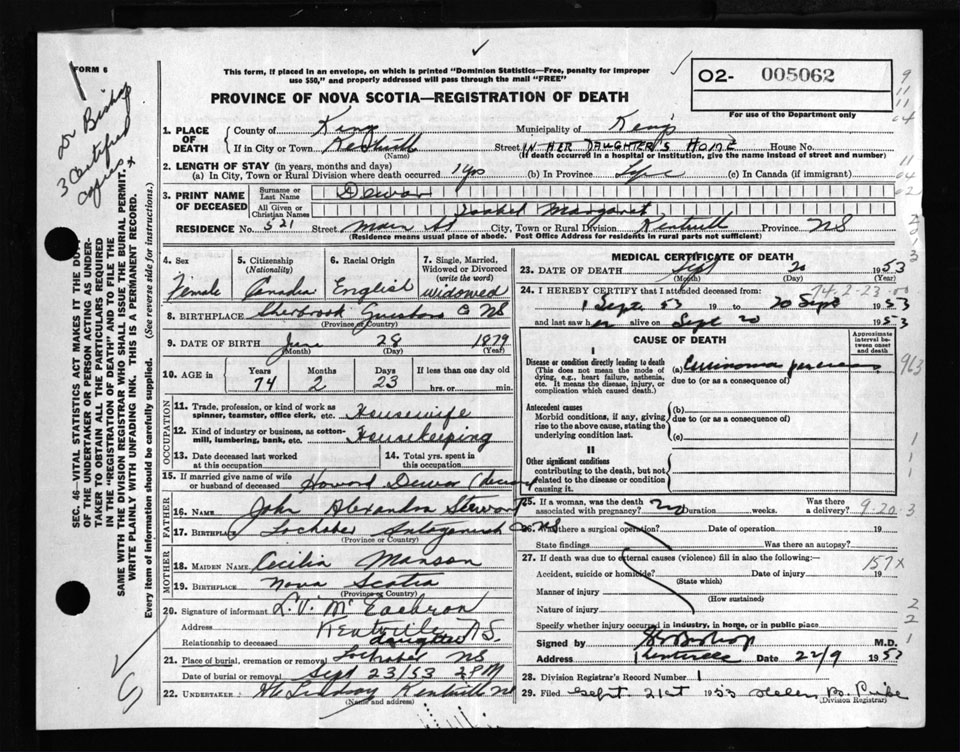 FORM 6
This form, if placed in an envelope, on which is printed "Dominion Statistics—Free, penalty for improper
use $50," and properly addressed will pass through the mail "FREE"
O2- 005062
For use of the Department only
PROVINCE OF NOVA SCOTIA—REGISTRATION OF DEATH
Dr Bishop
3 Certified
copies
SEC. 46—VITAL STATISTICS ACT MAKES IT THE DUTY
OF THE UNDERTAKER OR PERSON ACTING AS UNDER-
TAKER TO OBTAIN ALL THE PARTICULARS REQUIRED
IN THE "REGISTRATION OF DEATH" AND TO FILE THE
SAME WITH THE DIVISION REGISTRAR WHO SHALL ISSUE THE BURIAL PERMIT.
WRITE PLAINLY WITH UNFADING INK. THIS IS A PERMANENT RECORD.
Every item of information should be carefully supplied. (See reverse side for instructions.)
1. PLACE OF DEATH
County of Kings Municipality of Kings
If in City or Town Kentville (Name) Street IN HER DAUGHTER'S HOME House No.
(If death occurred in a hospital or institution, give the name instead of street and number)
2. LENGTH OF STAY (in years, months and days)
(a) In City, Town or Rural Division where death occurred 1 yrs (b) In Province Life (c) In Canada (if immigrant)
3. PRINT NAME OF DECEASED
Surname or Last Name Dewar
All Given or Christian Names Isabel Margaret
RESIDENCE No. 521 Street Main St City, Town or Rural Division Kentville Province NS
(Residence means usual place of abode. Post Office Address for residents in rural parts not sufficient)
4. Sex Female
5. Citizenship (Nationality) Canadian
6. Racial Origin English
7. Single, Married, Widowed or Divorced (write the word) Widowed
8. BIRTHPLACE Sherbrook Guysboro Co NS
(Province or Country)
9. DATE OF BIRTH June 28 1879
(Month) (Day) (Year)
10. AGE in Years 74 Months 2 Days 23 If less than one day hrs. or min.
OCCUPATION
11. Trade, profession, or kind of work as spinner, teamster, office clerk, etc. Housewife
12. Kind of industry or business, as cotton-mill, lumbering, bank, etc. Housekeeping
13. Date deceased last worked at this occupation
14. Total yrs. spent in this occupation
15. If married give name of wife or husband of deceased Howard Dewar
FATHER
16. NAME John Alexandra Stewart
17. BIRTHPLACE Lochaber Antogonish Co NS
(Province or Country)
MOTHER
18. MAIDEN NAME Cecilia Manson
19. BIRTHPLACE Nova Scotia
(Province or Country)
20. Signature of informant L.V. McEachron
Address Kentville NS
Relationship to deceased daughter
21. Place of burial, cremation or removal Lochaber NS
Date of burial or removal Sept 23/53 2 PM
22. UNDERTAKER Lindsay Kentville NS
(Name and address)
MEDICAL CERTIFICATE OF DEATH
23. DATE OF DEATH Sept 20 1953
(Month) (Day) (Year)
74-2-23-00
24. I HEREBY CERTIFY that I attended deceased from:
1 Sept 53 19 to 20 Sept 1953
and last saw her alive on Sept 20 1953
CAUSE OF DEATH
Approximate interval between onset and death
I
Disease or condition directly leading to death
(This does not mean the mode of dying, e.g., heart failure, asthenia, etc. It means the disease, injury, or complication which caused death.)
(a) Carcinoma pancreas
due to (or as a consequence of)
963
Antecedent causes
Morbid conditions, if any, giving rise to the above cause, stating the underlying condition last.
(b)
due to (or as a consequence of)
(c)
II
Other significant conditions
contributing to the death, but not related to the disease or condition causing it.
25. If a woman, was the death associated with pregnancy? no Duration weeks. Was there a delivery?
9-20-3
26. Was there a surgical operation? Date of operation 19
State findings Was there an autopsy?
27. If death was due to external causes (violence) fill in also the following:—
157X
Accident, suicide or homicide? Date of injury 19
(State which)
Manner of injury
(How sustained)
Nature of injury
Specify whether injury occurred in industry, in home, or in public place
Signed by Bishop M.D.
Address Kentville Date 22/9 1953
28. Division Registrar's Record Number 1
29. Filed Sept. 21st 1953 Helen B.
(Division Registrar)